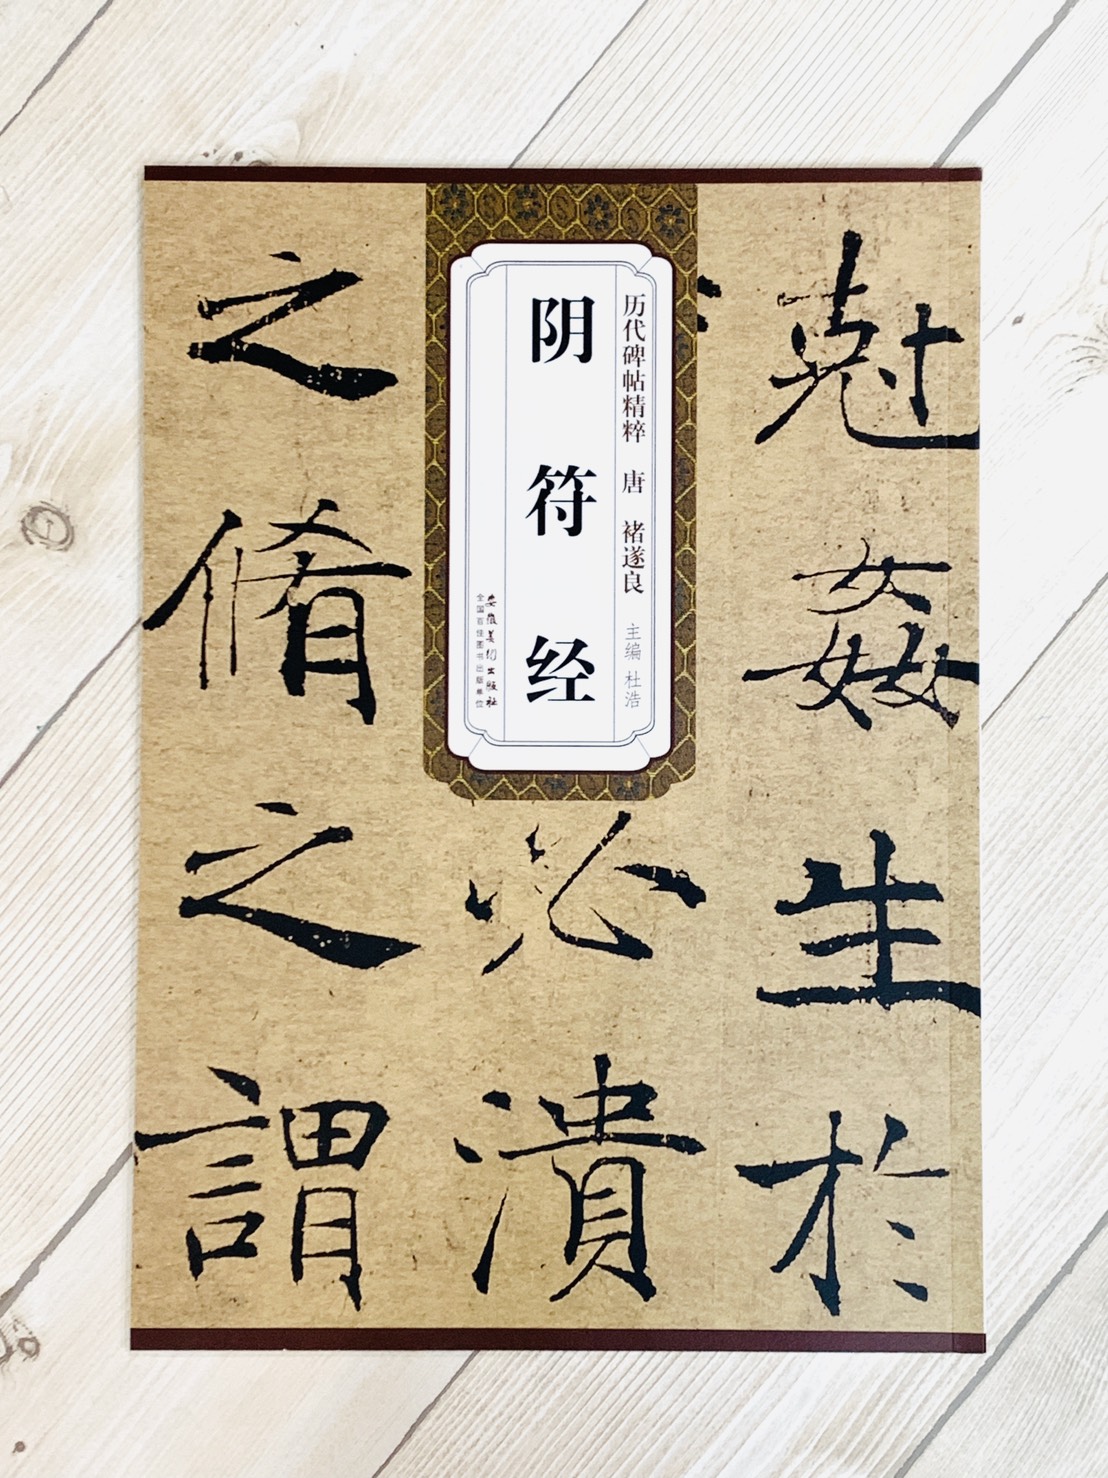 历代碑帖精粹 唐 褚遂良 主编 杜浩
阴符经
安徽美术出版社
全国百佳图书出版单位
尅姦生於
必潰
之脩之謂